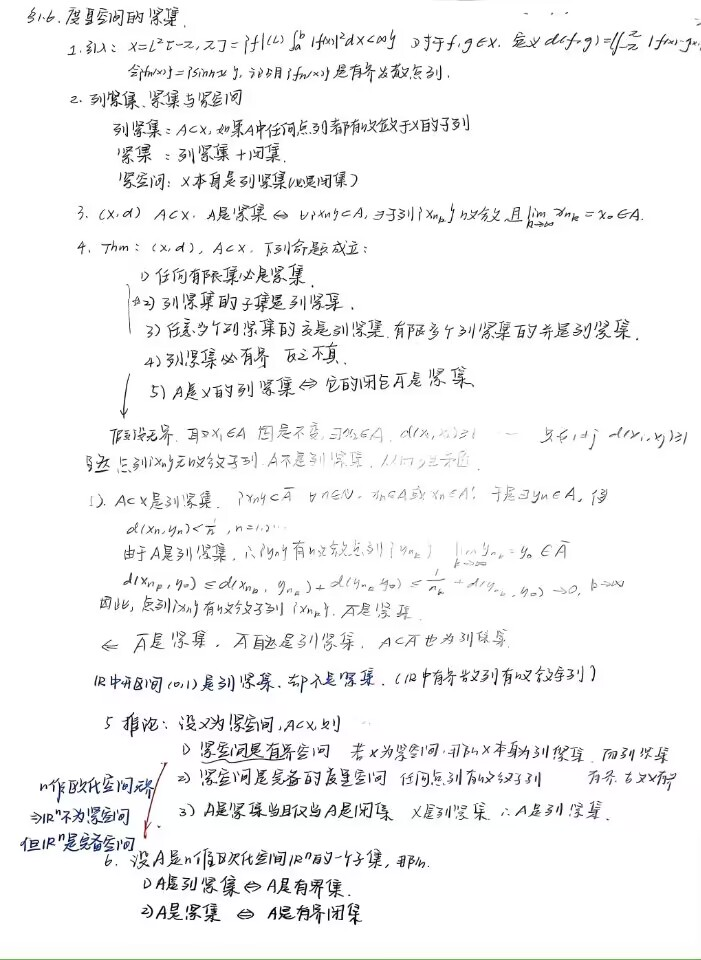 §1.6. 度量空间的紧集.
1. 引入: X=L²[-π,π]={f|(L)∫ₐᵇ|f(x)|²dx<∞} 对于f,g∈X. 定义d(f,g)=(∫_{-π}^{π}|f(x)-g(x)
令{fn(x)}={sin nx}, 证明{fn(x)}是有界发散点列.
2. 列紧集、紧集与紧空间
列紧集: A⊂X, 如果A中任何点列都有收敛于X的子列
紧集: 列紧集+闭集.
紧空间: X本身是列紧集(必是闭集)
3. (X,d) A⊂X. A是紧集⇔∀{xn}⊂A, ∃子列{x_{nk}}收敛且lim_{k→∞} x_{nk}=x₀∈A.
4. Thm: (X,d), A⊂X. 下列命题成立:
1) 任何有限集必是紧集.
2) 列紧集的子集是列紧集.
3) 任意多个列紧集的交是列紧集. 有限多个列紧集的并是列紧集.
4) 列紧集必有界 反之不真.
5) A是X的列紧集⇔它的闭包Ā是紧集.
假设无界. 取x₁∈A 固定不变, ∃x₂∈A, d(x₁,x₂)≥1 ⋯⋯ i≠j d(xᵢ,xⱼ)≥1
显然 点列{xn}无收敛子列 A不是列紧集. 矛盾.
A⊂X是列紧集. {xn}⊂Ā ∀n∈N. xn∈A或xn∈A' 于是∃yn∈A, 使
d(xn,yn)<1/n, n=1,2⋯
由于A是列紧集, ∴{yn}有收敛点列{y_{nk}} lim_{k→∞} y_{nk}=y₀∈Ā
d(x_{nk},y₀)≤d(x_{nk},y_{nk})+d(y_{nk},y₀)≤1/n_k+d(y_{nk},y₀)→0, k→∞
因此, 点列{xn}有收敛子列{x_{nk}}, Ā是紧集.
⇐ Ā是紧集. Ā自然是列紧集. A⊂Ā也为列紧集.
IR中开区间(0,1)是列紧集. 却不是紧集. (IR中有界数列有收敛子列)
5 推论: 设X为紧空间, A⊂X, 则
1) 紧空间是有界空间 若X为紧空间, 那么X本身为列紧集. 而列紧集
2) 紧空间是完备的度量空间 任何点列有收敛子列 有界. 故X有界
3) A是紧集当且仅当A是闭集 X是列紧集 ∴A是列紧集.
n维欧氏空间无界
⇒IRⁿ不为紧空间
但IRⁿ是完备空间
6. 设A是n维欧氏空间IRⁿ的一个子集, 那么.
1) A是列紧集⇔A是有界集.
2) A是紧集 ⇔ A是有界闭集